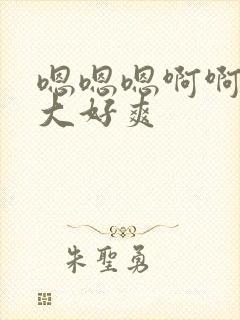 嗯嗯嗯啊啊
大好爽
朱聖勇